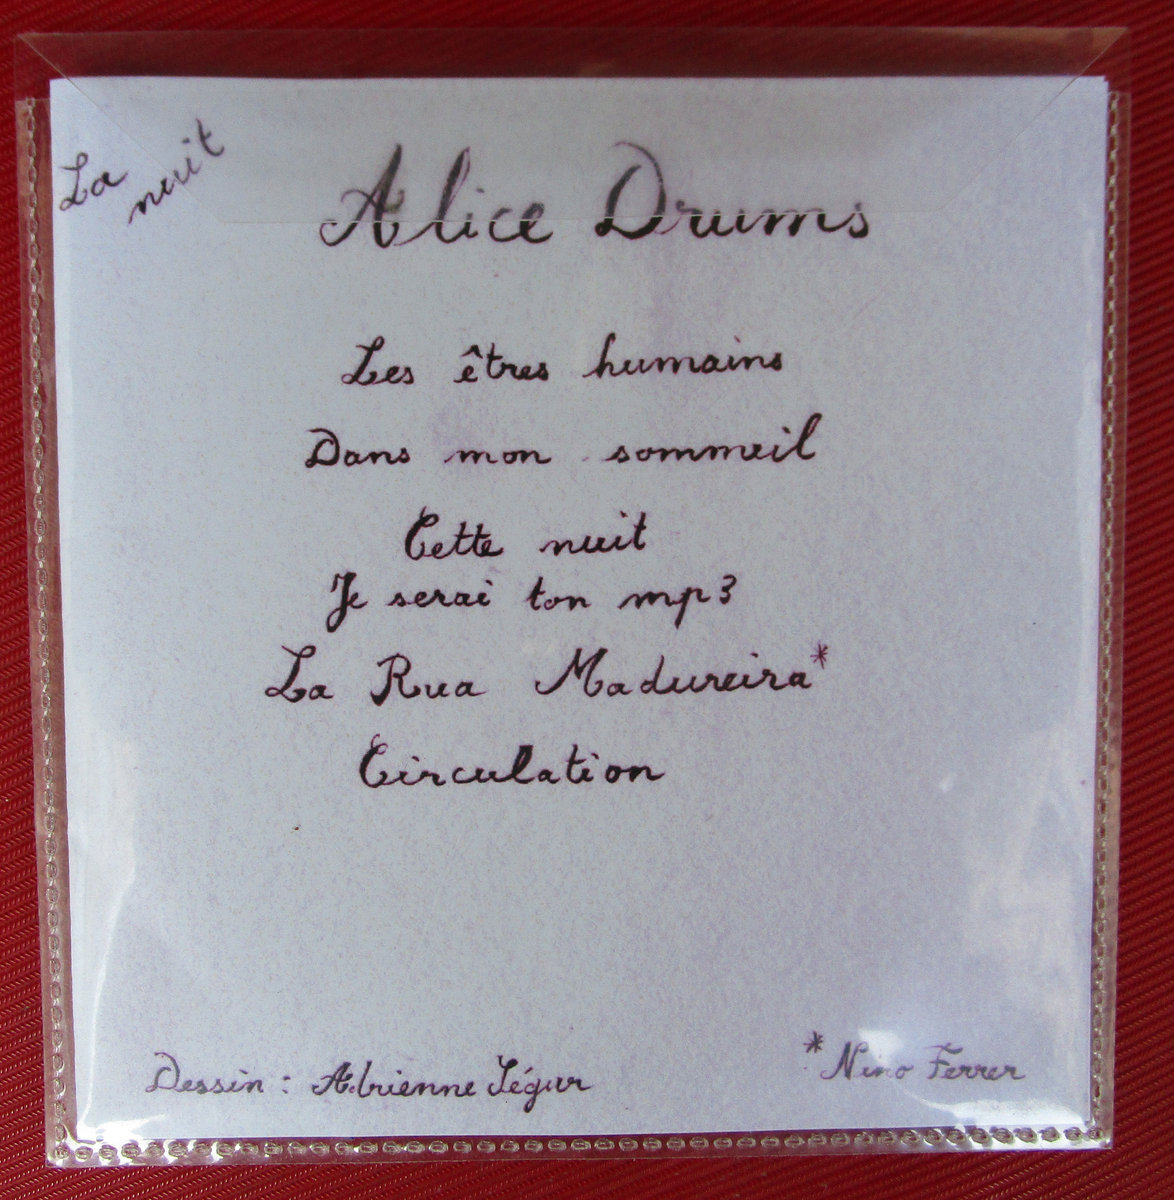 La
nuit
Alice Drums
Les êtres humains
Dans mon sommeil
Cette nuit
Je serai ton mp3
La Rua Madureira*
Circulation
Dessin : Adrienne Ségur
* Nino Ferrer